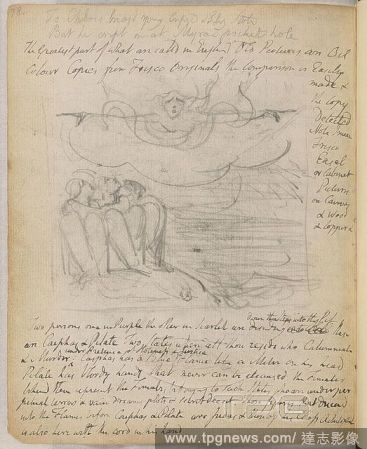 To Chloes breast young Cupid slily stole
But he crept in at Myras pocket hole
The Greatest part of what are called in England Old Pictures are Oil
Colour Copies from Fresco Originals the Comparison is Easily
made &
the copy
Detected
Note I mean
Fresco
Easel
or Cabinet
Pictures
on Canvas
& Wood
& Copper &
down the Steps into the Pit these
Two persons one in Purple the other in Scarlet are descending
are Caiphas & Pilate Two States where all those reside who Calumniate
under Pretence of Holiness & Justice
& Murder Caiphas has a Blue Flame like a Miter on his head
Pilate has bloody hands that never can be cleansed the Females
behind them represent the Females belonging to such States who are under per
petual terrors & vain dreams plots & secret deceit Those figures that descend
into the Flames before Caiphas & Pilate are Judas & those of his Class Achitophel
is also here with the cord in his hand
www.tpgnews.com/達志影像